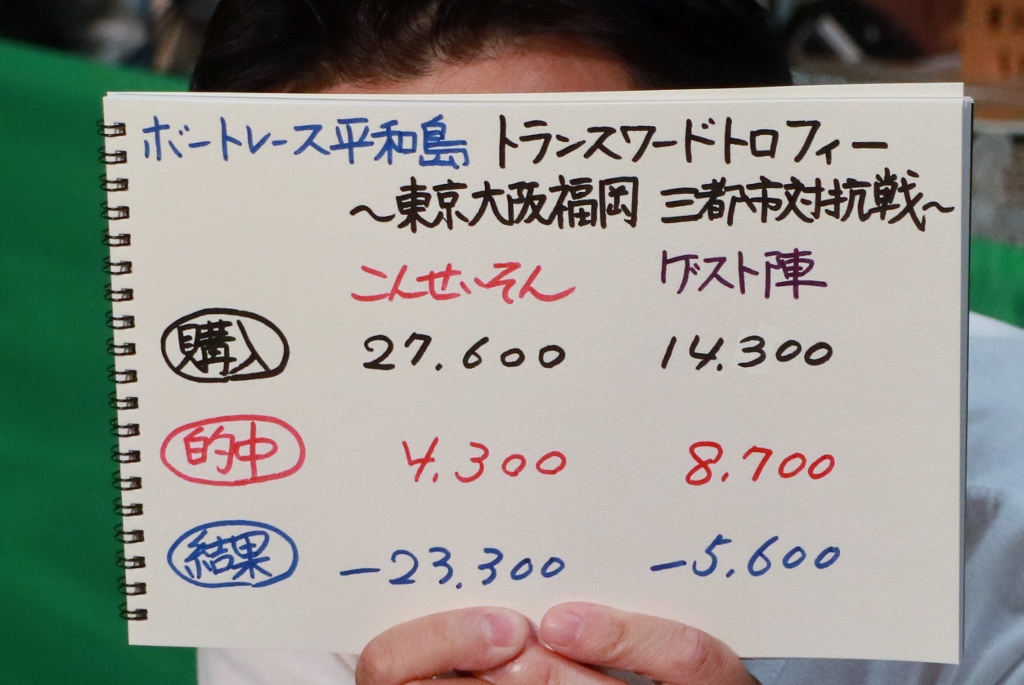 ボートレース平和島 トランスワードトロフィー
～東京大阪福岡 三都市対抗戦～
こんせいそん ゲスト陣
購入 27.600 14.300
的中 4.300 8.700
結果 -23.300 -5.600